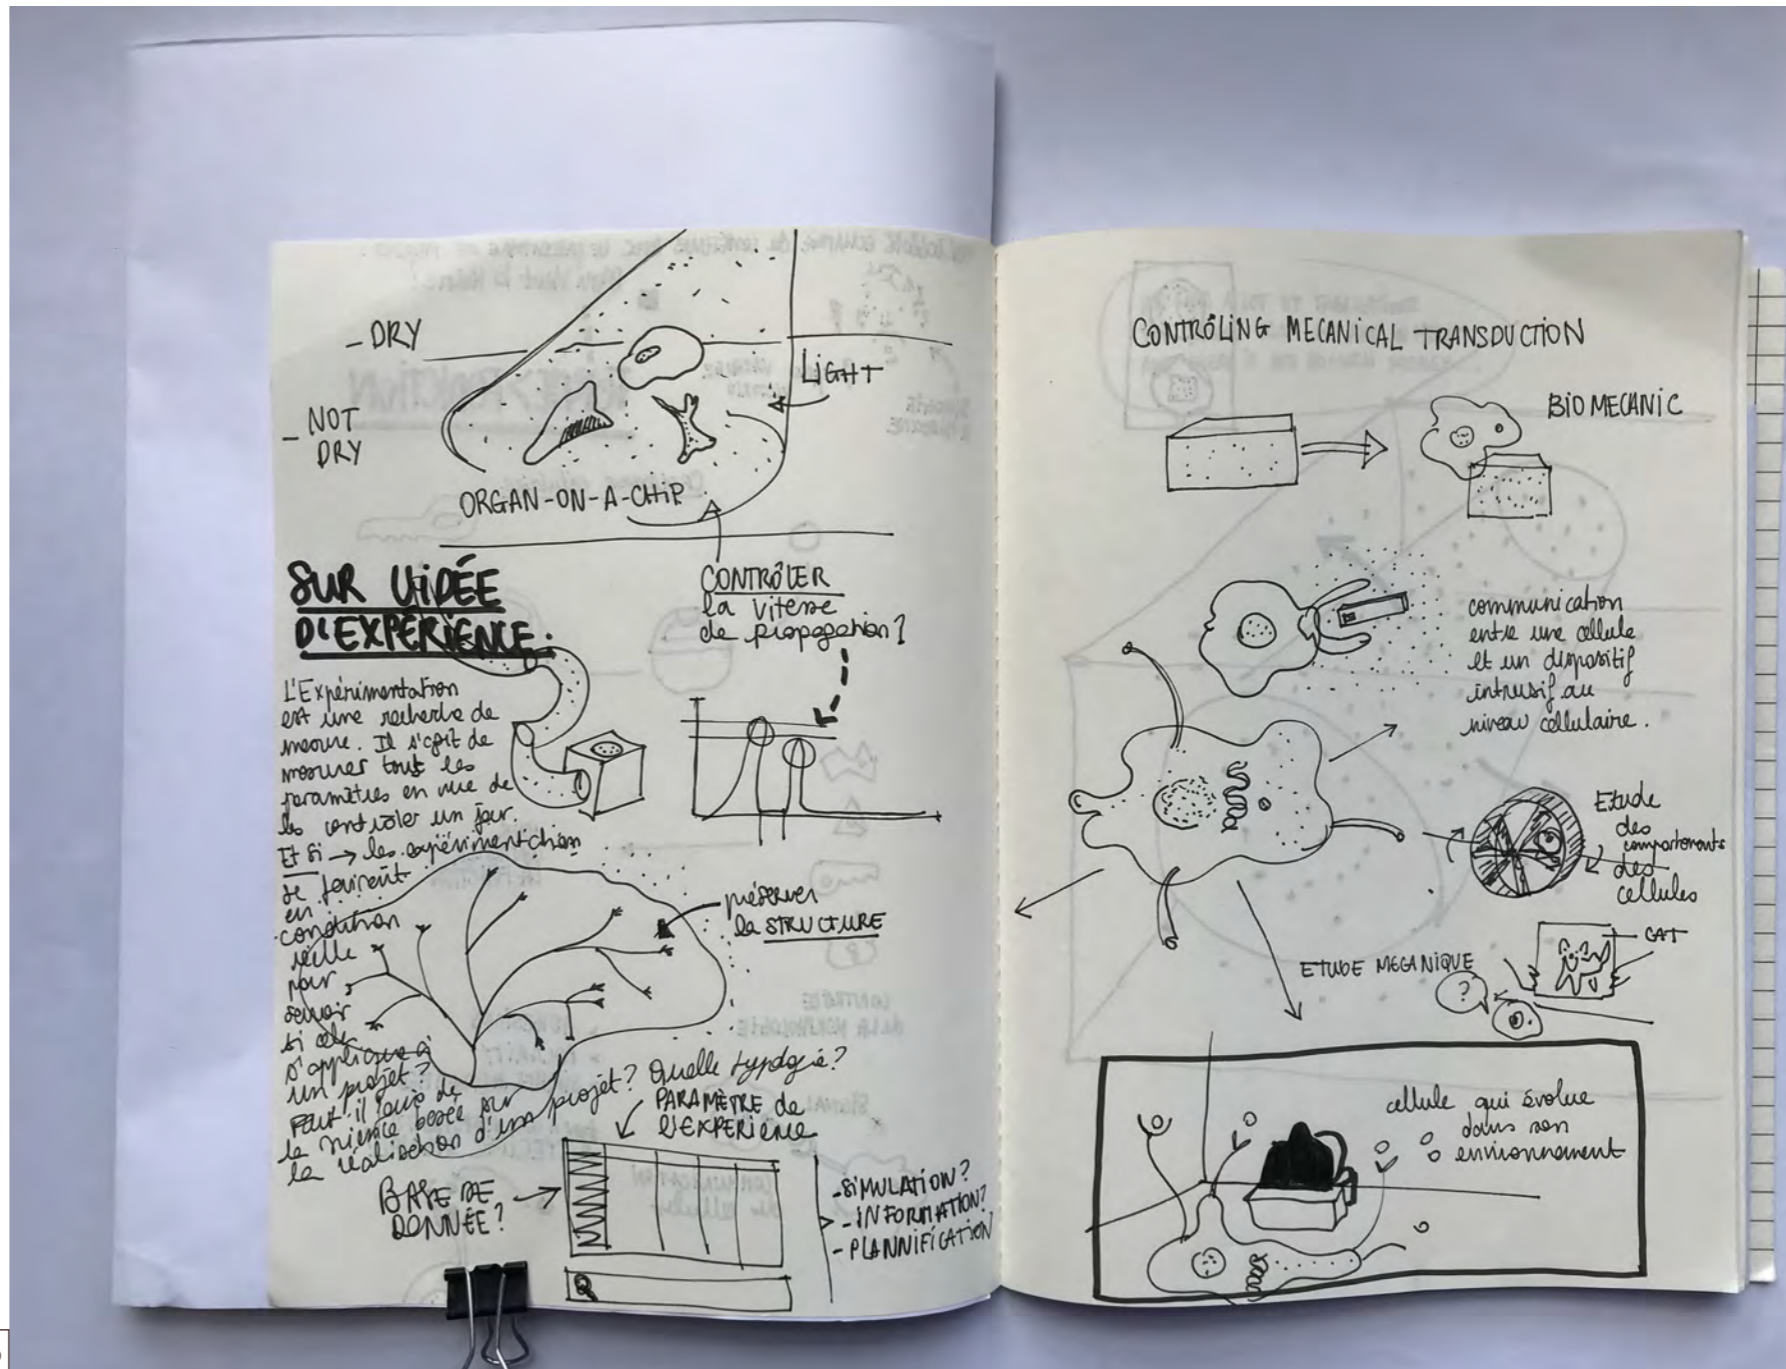 - DRY
- NOT
DRY
LIGHT
ORGAN-ON-A-CHIP
SUR L'IDÉE
D'EXPÉRIENCE.
CONTRÔLER
la vitesse
de propagation?
L'Expérimentation
est une recherche de
mesure. Il s'agit de
mesurer tout les
paramètres en vue de
les controler un jour.
Et si → les expérimentation
se feraient
en
condition
réelle
pour
savoir
si cela
s'applique à
un projet?
Peut-il faire de
la science basée sur
la réalisation d'un projet? Quelle typologie?
préserver
la STRUCTURE
PARAMÈTRE de
l'EXPERIENCE
BASE DE
DONNÉE?
- SIMULATION?
- INFORMATION?
- PLANNIFICATION
CONTRÔLING MECANICAL TRANSDUCTION
BIOMECANIC
communication
entre une cellule
et un dispositif
intrusif au
niveau cellulaire.
Etude
des
comportements
des
cellules
CAT
ETUDE MECANIQUE
?
cellule qui évolue
dans son
environnement